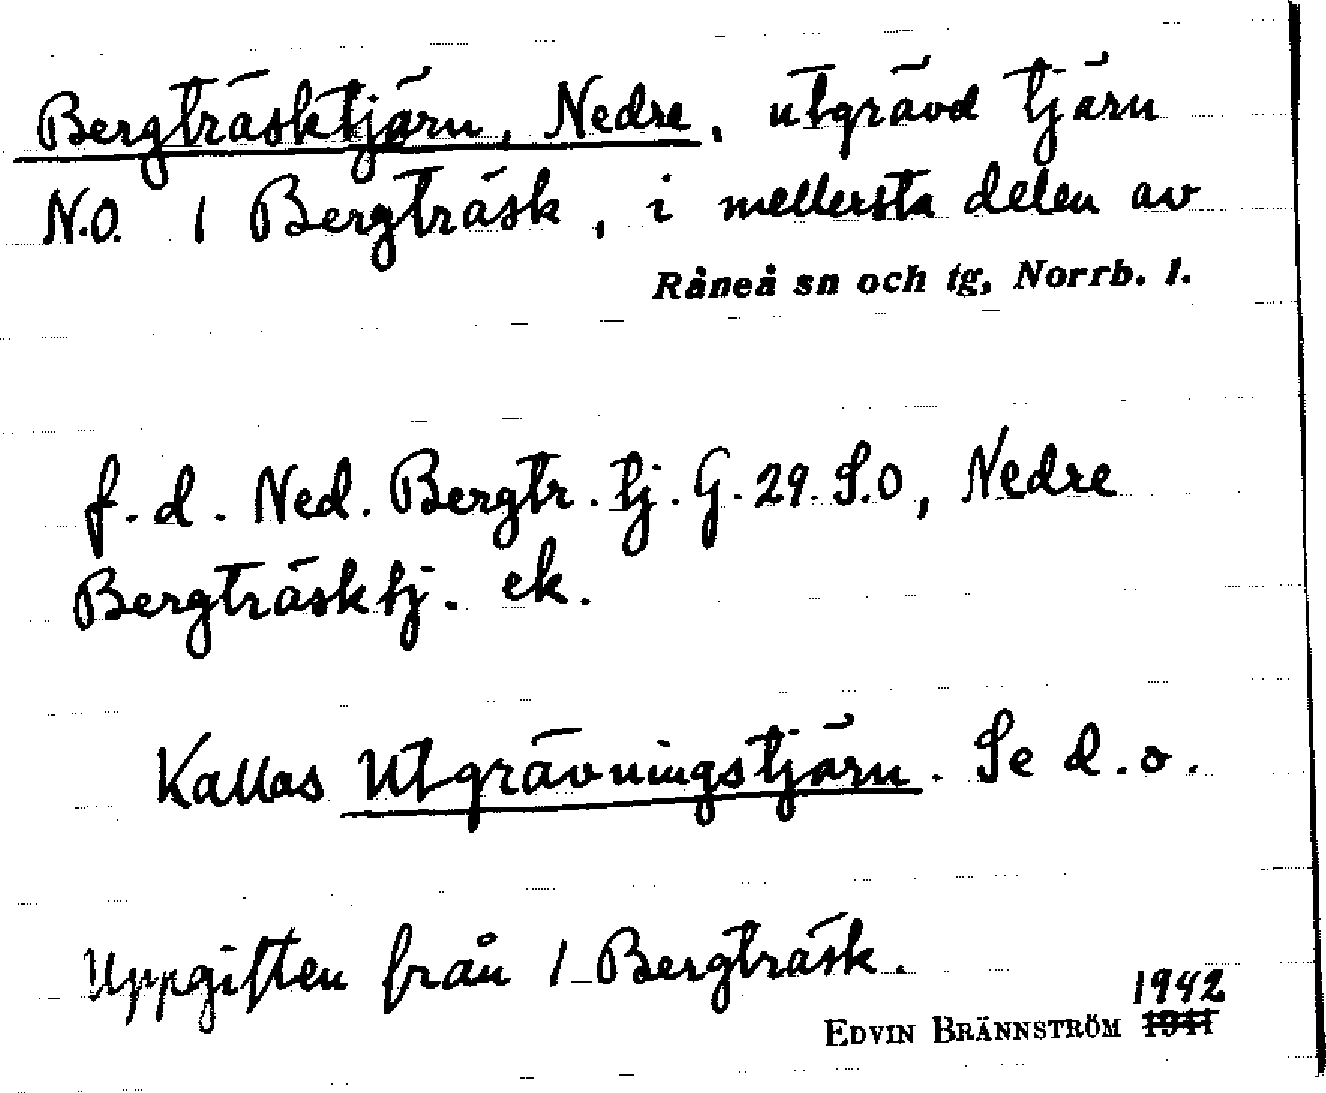 Bergträsktjärn, Nedre, utgrävd tjärn
N.O. 1 Bergträsk, i mellersta delen av
Råneå sn och tg, Norrb. l.
f.d. Ned. Bergtr.tj. G. 29 S.O, Nedre
Bergträsktj. ek.
Kallas Utgrävningstjärn. Se d.o.
Uppgiften från 1 Bergträsk.
1942
EDVIN BRÄNNSTRÖM 1941